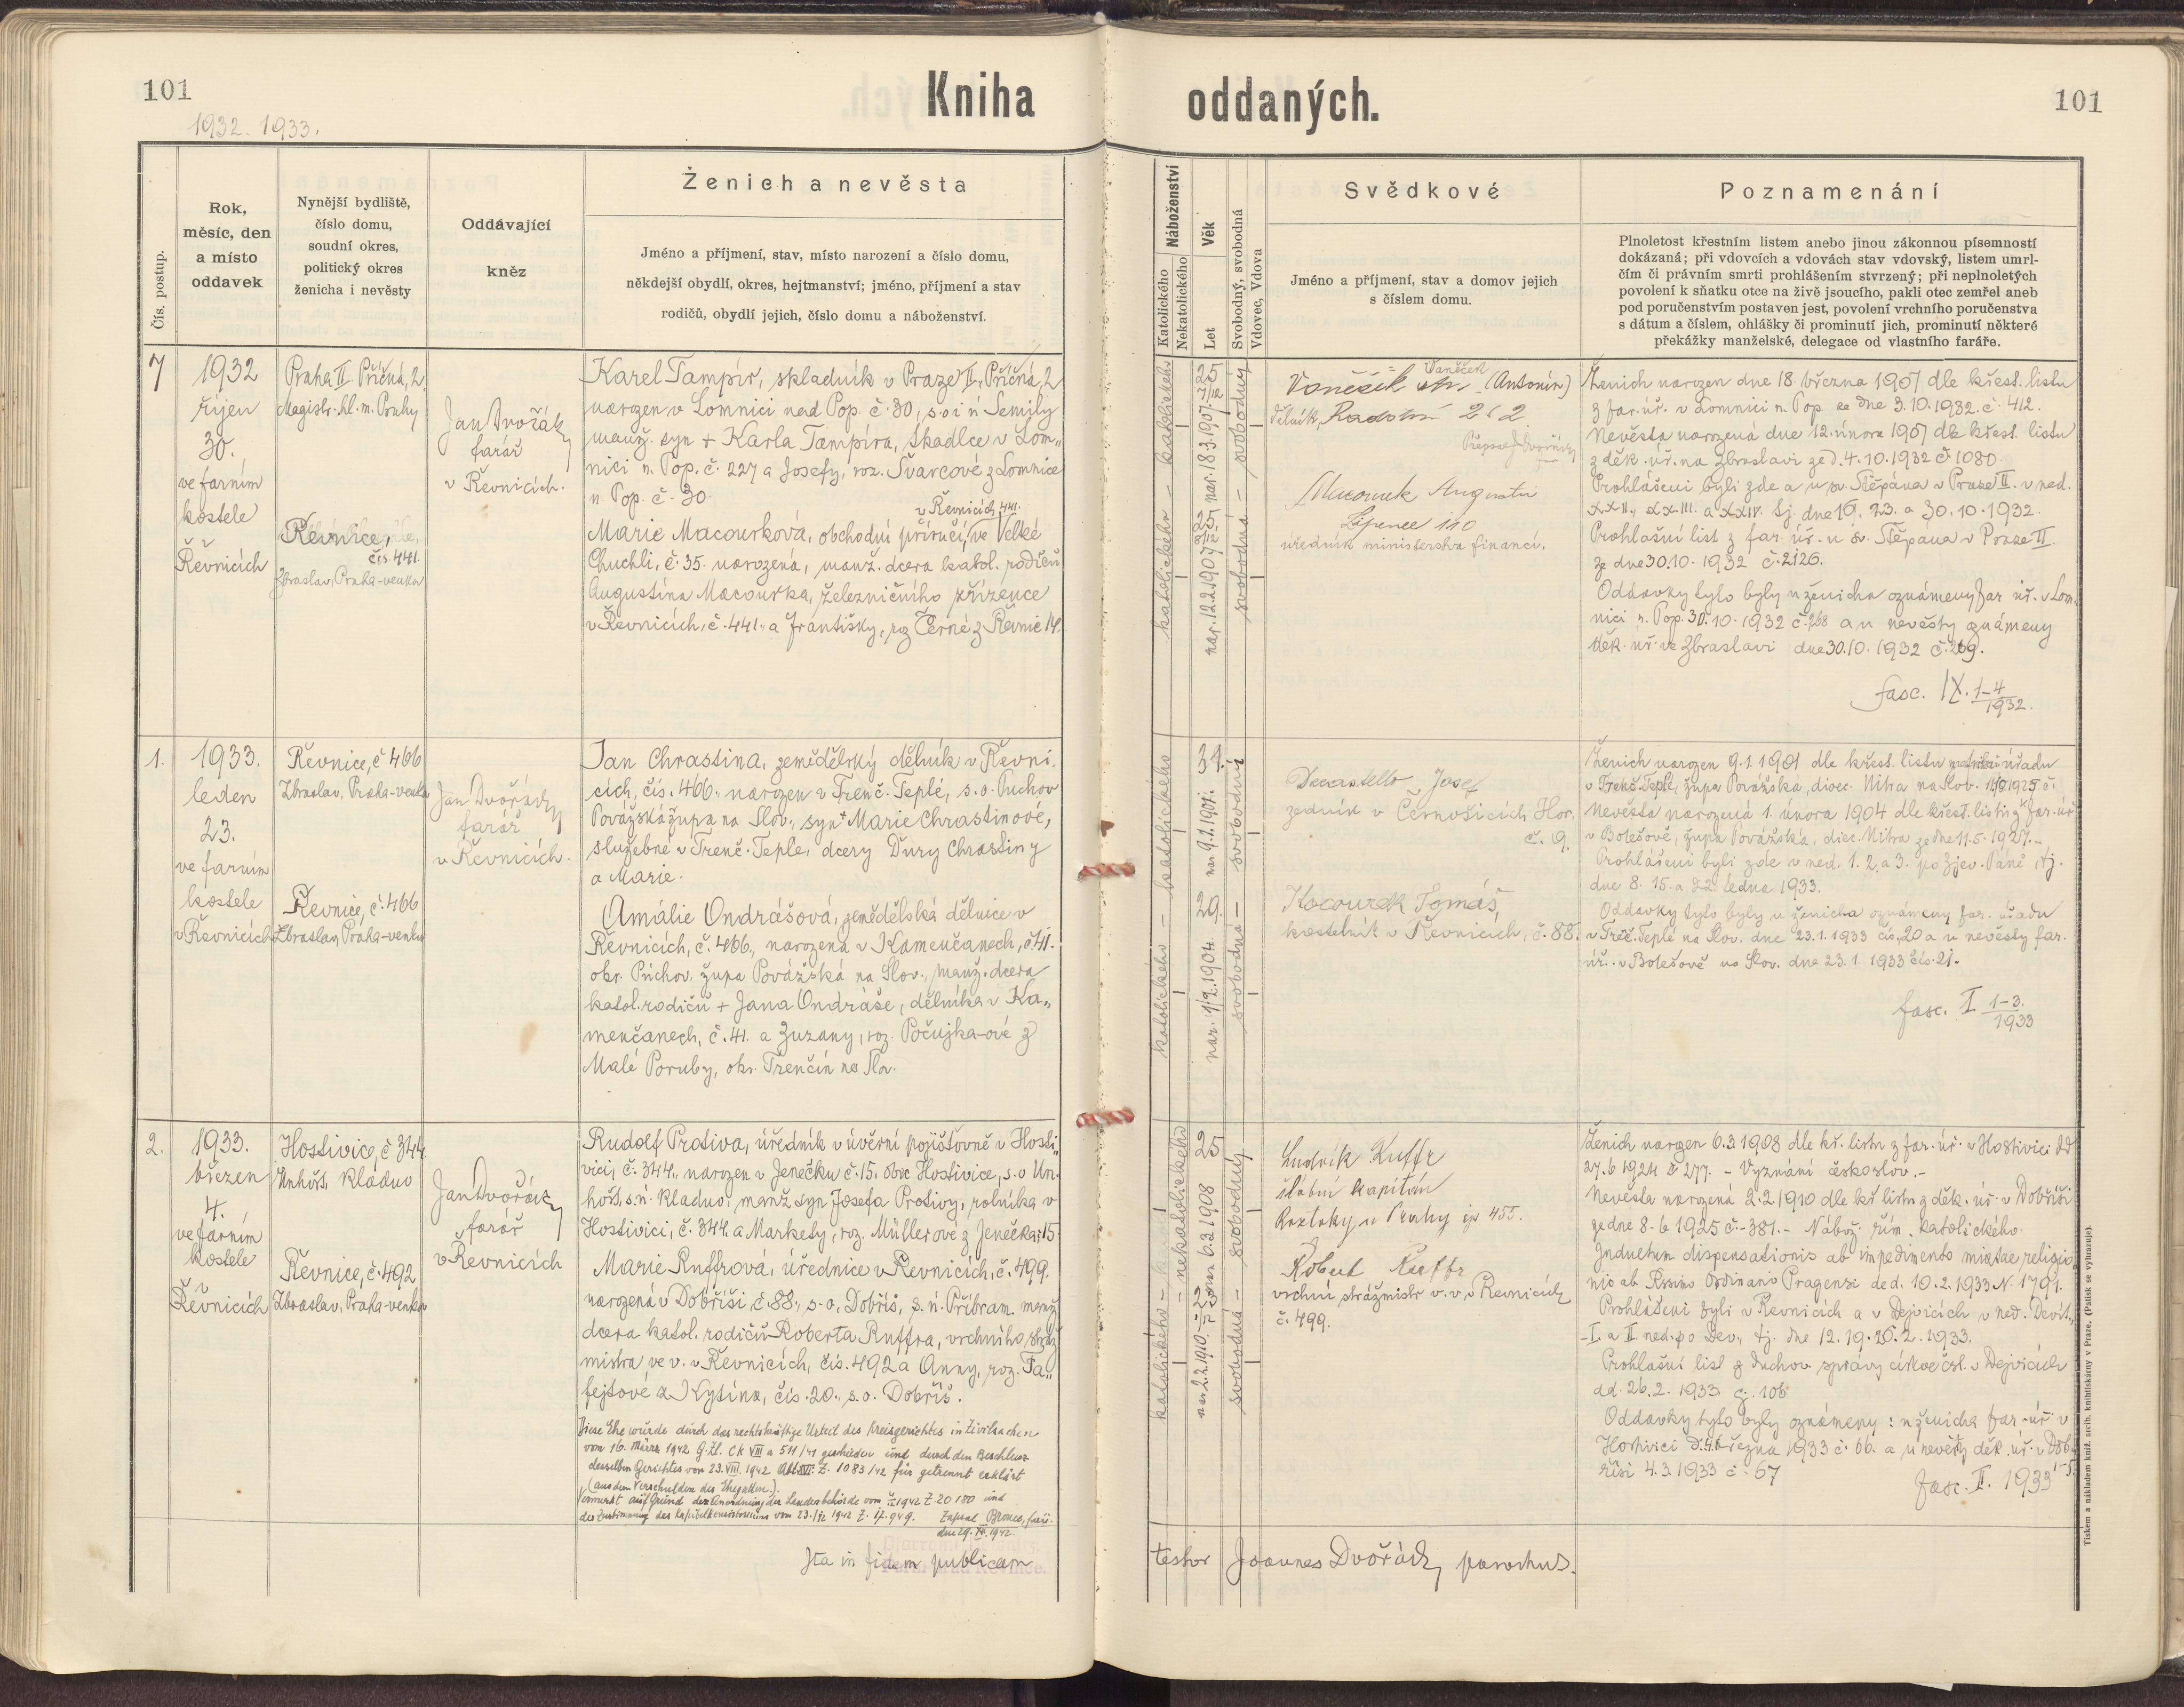 101
Kniha
oddaných.
101
1932. 1933.
Čís. postup.
Rok,
měsíc, den
a místo
oddavek
Nynější bydliště,
číslo domu,
soudní okres,
politický okres
ženicha i nevěsty
Oddávající
kněz
Ženich a nevěsta
Jméno a příjmení, stav, místo narození a číslo domu,
někdejší obydlí, okres, hejtmanství; jméno, příjmení a stav
rodičů, obydlí jejich, číslo domu a náboženství.
Náboženství
Katolického
Nekatolického
Věk
Let
Svobodný, svobodná
Vdovec, Vdova
Svědkové
Jméno a příjmení, stav a domov jejich
s číslem domu.
Poznamenání
Plnoletost křestním listem anebo jinou zákonnou písemností
dokázaná; při vdovcích a vdovách stav vdovský, listem umrl-
čím či právním smrti prohlášením stvrzený; při neplnoletých
povolení k sňatku otce na živě jsoucího, pakli otec zemřel aneb
pod poručenstvím postaven jest, povolení vrchního poručenstva
s dátum a číslem, ohlášky či prominutí jich, prominutí některé
překážky manželské, delegace od vlastního faráře.
7
1932
říjen
30.
ve farním
kostele
v
Řevnicích
Praha II Příčná, 2
Magistr. hl. m. Prahy
Řevnice,
čís. 441.
Zbraslav, Praha-venkov
Jan Dvořák,
farář
v Řevnicích.
Karel Tampír, skladník v Praze II, Příčná, 2
narozen v Lomnici nad Pop. č. 30, s. o. i n Semily
manž. syn + Karla Tampíra, tkadlce v Lom„
nici n. Pop. č. 227 a Josefy, roz. Švarcové z Lomnice
n. Pop. č. 30.
v Řevnicích 441.
Marie Macourková, obchodní příručí, ve Velké
Chuchli, č. 35. narozená, manž. dcera katol. rodičů
Augustína Macourka, železničního zřízence
v Řevnicích, č. 441., a Františky, roz Černé z Řevnic 14.
katolického – katolického
25
nar. 18.3.1907.
25
nar. 12.2.1907
svobodná – svobodný
Vaněček
Vaněček (Antonín)
dělník, Radotín 262
Macourek Augustin
Lipence 110
úředník ministerstva financí.
Ženich narozen dne 18 března 1907 dle křest. listu
z far. úř. v Lomnici n. Pop. ze dne 3.10.1932. č. 412.
Nevěsta narozená dne 12. února 1907 dle křest. listu
z děk. úř. na Zbraslavi ze d. 4.10.1932 č 1080.
Prohlášeni byli zde a u sv. Štěpána v Praze II. v ned.
XXII., XXIII. a XXIV. tj. dne 16. 23. a 30.10.1932.
Prohlašní list z far úř. u sv. Štěpána v Praze II.
ze dne 30.10. 1932 č. 2126.
Oddavky tyto byly u ženicha oznámeny far. úř. v Lom„
nici n. Pop. 30.10.1932 č. 268 a u nevěsty oznámeny
děk. úř. ve Zbraslavi dne 30.10. 1932 č. 269.
fasc. IX. 1-4
1932.
1.
1933.
leden
23.
ve farním
kostele
v Řevnicích
Řevnice, č 466
Zbraslav, Praha-venkov
Řevnice, č. 466
Zbraslav, Praha-venkov
Jan Dvořák,
farář
v Řevnicích.
Jan Chrastina, zemědělský dělník v Řevni.
cích, čís. 466., narozen v Trenč. Teplé, s. o. Puchov
Povážská župa na Slov., syn + Marie Chrastinové,
služebné v Trenč. Teple, dcery Ďury Chrastiny
a Marie.
Amálie Ondrášová, zemědělská dělnice v
Řevnicích, č. 466., narozená v Kamenčanech, č. 41.
okr. Púchov. župa Povážská na Slov., manž. dcera
katol. rodičů + Jana Ondráše, dělníka v Ka„
menčanech, č. 41. a Zuzany, roz. Počujka-ové z
Malé Poruby, okr. Trenčín na Slov.
katolického – katolického
31.
nar. 9.1.1901.
29.
nar. 1/2.1904.
svobodná – svobodný
Josef
zedník v Černošicích Hor.
č. 9.
Kocourek Tomáš,
kostelník v Řevnicích, č. 88.
Ženich narozen 9.1.1901 dle křest. listu úřadu
v Trenč. Teplé, župa Povážská, dioec. Nitra na Slov.
Nevěsta narozená 1. února 1904 dle křest. listu z far. úř
v Bolešově, župa Povážská, diec. Nitra ze dne 11.5.1927.–
Prohlášeni byli zde v ned. 1. 2. a 3. po Zjev. Páně, tj.
dne 8. 15. a 22. ledna 1933.
Oddavky tyto byly u ženicha oznámeny far. úřadu
v Trenč. Teplé na Slov. dne 23.1.1933 čís. 20 a u nevěsty far.
úř. v Bolešově na Slov. dne 23.1.1933 čís. 21.
fasc. I 1-3.
1933
2.
1933.
březen
4.
ve farním
kostele
v
Řevnicích
Hostivice, č 344.
Unhošť, Kladno
Řevnice, č. 492
Zbraslav, Praha-venkov
Jan Dvořák,
farář
v Řevnicích
Rudolf Protiva, úředník v úvěrní pojišťovně v Hosti„
vici, č. 344., narozen v Jenečku č. 15. obec Hostivice, s. o Un„
hošť, s. n. Kladno, manž. syn Josefa Protivy, rolníka v
Hostivici, č. 344. a Markety, roz. Müllerové z Jenečka, 15
Marie Ruffrová, úřednice v Řevnicích, č. 499.
narozená v Dobříši, č. 88., s. o. Dobříš, p. n. Příbram. manž.
dcera katol. rodičů Roberta Ruffra, vrchního stráž
mistra ve v. v Řevnicích, čís. 492 a Anny, roz. Fa„
fejtové z Kytína, čís. 20., s. o. Dobříš.
Diese Ehe wurde durch das rechtskräftige Urteil des Kreisgerichtes in Zivilsachen
vom 16. März 1942 G. Zl. Ck VIII a 511/41 geschieden und durch den Beschluss
desselben Gerichtes vom 23. VIII. 1942 Abt. XVI. Z. 1083/42 für getrennt erklärt
(aus dem Verschulden des Ehegatten.).
Vermerkt auf Grund der Anordnung der Landesbehörde vom 1942 Z. 20180 und
der Zustimmung des Kapitelkonsistoriums vom 23./ 1942 Z. 17.949. Zapsal farář.
dne 29. 1942.
katolického – nekatolického
25
nar. 6.3.1908
nar. 2.2.1910.
svobodná – svobodný
Ludvík Ruffr
štábní kapitán
Roztoky u Prahy čp 455.
Robert Ruffr
vrchní strážmistr v. v. v Řevnicích
č. 499.
Ženich narozen 6.3.1908 dle kř. listu z far. úř. v Hostivici dd
27.6 1924 č 277. – Vyznání českoslov. –
Nevěsta narozená 2.2.1910 dle kř listu z děk. úř. v Dobříši
ze dne 8.6 1925 č. 381. – Nábož. řím. katolického.
Indultum dispensationis ab impedimento mixtae religio„
nis ab Rssmo Ordinario Pragensi de d. 10.2.1933 N. 1791.
Prohlášeni byli v Řevnicích a v Dejvicích v ned. Devít.,
I. a II. ned. po Dev., tj. dne 12. 19. 26. 2. 1933.
Prohlašní list z duchov. správy církve čsl. v Dejvicích
dd. 26.2.1933 čj. 106
Oddavky tyto byly oznámeny: u ženicha far. úř. v
Hostivici d. 4. března 1933 č. 66. a u nevěsty děk. úř. v Dob„
říši 4.3.1933 č. 67
fasc. II. 1933 1-5.
Ita in fidem publicam
Farní úřad Řevnice.
testor Joannes Dvořák, parochus.
Tiskem a nákladem kníž. arcib. knihtiskárny v Praze. (Patisk se vyhrazuje).